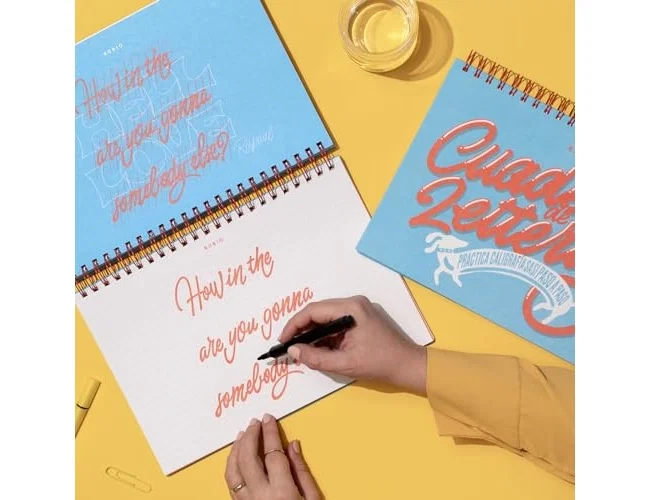 RUBIO
How in the
are you gonna
somebody else?
RuPaul
RUBIO
How in the
are you gonna
somebody
de
PRACTICA CALIGRAFÍAS PASO A PASO